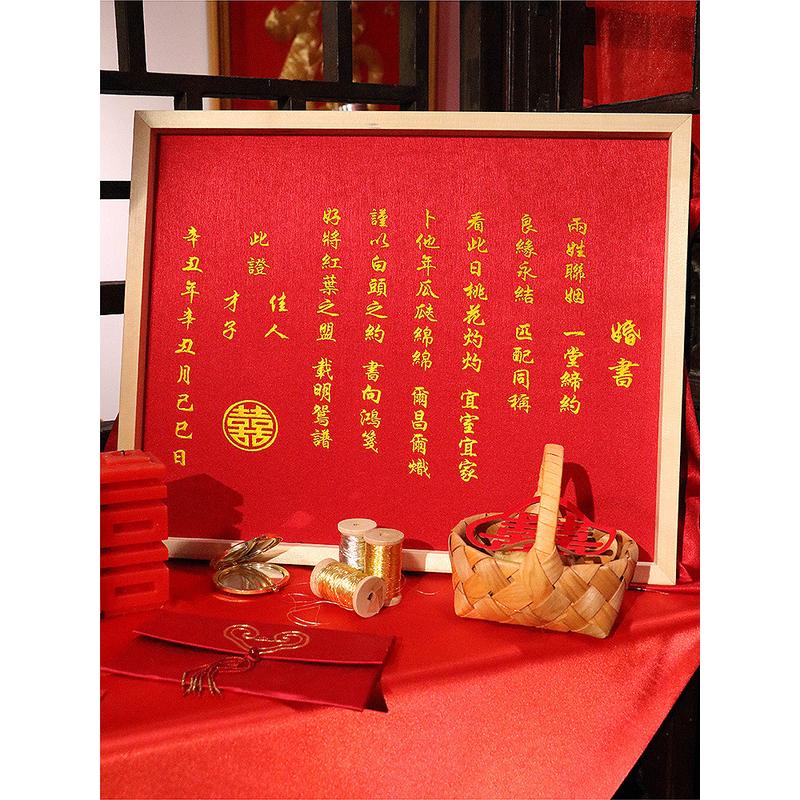 婚書
兩姓聯姻 一堂締約
良緣永結 匹配同稱
看此日桃花灼灼 宜室宜家
卜他年瓜瓞綿綿 爾昌爾熾
謹以白頭之約 書向鴻箋
好將紅葉之盟 載明鴛譜
此證
佳人
才子
囍
辛丑年辛丑月己巳日